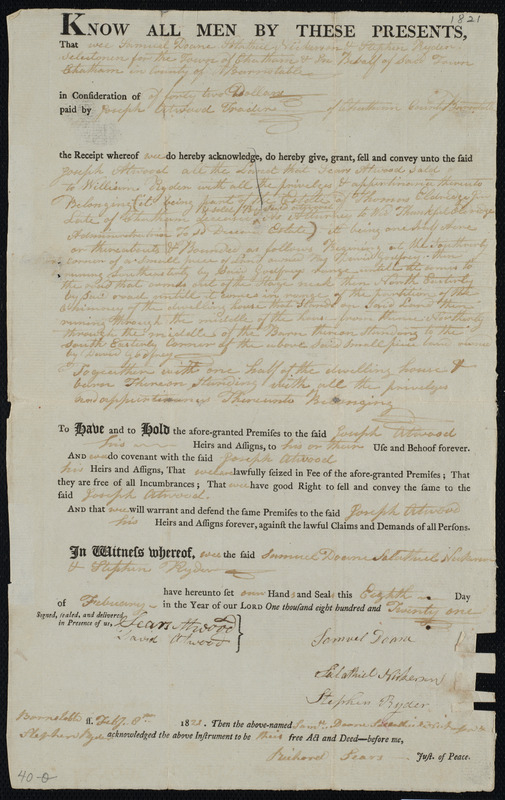 1821
KNOW ALL MEN BY THESE PRESENTS,
That wee Samuel Doane Salathiel Nickerson & Stephen Ryder
Selectmen for the Town of Chatham & In Behalf of Said Town
Chatham in County of Barnstable
in Consideration of of Dollars
paid by Joseph Atwood Trader of Chatham County Barnstable
the Receipt whereof wee do hereby acknowledge, do hereby give, grant, sell and convey unto the said
Joseph Atwood all the that Sears Atwood Sold
to William Ryden with all the priveleges & appurtinances thereunto
Belonging (it being part of the Estate of Thomas Eldridge
Late of Chatham deceased as Attorney to Thankful Eldridge
Administratrix To Sd Deceased Estate) it being one
or thereabouts & Bounded as follows Begining at the Southerly
corner of a Small piece of Land owned by David Godfrey then
runing Southeasterly by Said Godfreys range untill it comes to
the road that comes out of the Stage neck then North Easterly
by Said road untill it comes in range of the of the
Chimney of the dwelling house that Stands on Said Land then
running through the middle of the house from thence Northerly
through the middle of the Barn thereon Standing to the
South Easterly Corner of the above Said Small piece Land owned
by David Godfrey
Togeather with one half of the dwelling house &
barn Thereon Standing with all the priveleges
and appurtinances Thereunto Belonging
To Have and to Hold the afore-granted Premises to the said Joseph Atwood
his Heirs and Assigns, to his or their Use and Behoof forever.
AND wee do covenant with the said Joseph Atwood
his Heirs and Assigns, That wee are lawfully seized in Fee of the afore-granted Premises; That
they are free of all Incumbrances; That wee have good Right to sell and convey the same to the
said Joseph Atwood.
AND that wee will warrant and defend the same Premises to the said Joseph Atwood
his Heirs and Assigns forever, against the lawful Claims and Demands of all Persons.
In Witness whereof, wee the said Samuel Doane Salathiel Nickerson
& Stephen Ryder
have hereunto set our Hands and Seals this Eighth Day
of February in the Year of our LORD One thousand eight hundred and Twenty one
Signed, sealed, and delivered
in Presence of us,
Sears Atwood
David Atwood
Samuel Doane
Salathiel Nickerson
Stephen Ryder
Barnstable ss. Feby. 8th 1821. Then the above-named Saml. Doane Salathiel Nickerson &
Stephen Ryder acknowledged the above Instrument to be their free Act and Deed—before me,
Richard Sears Just. of Peace.
40-0